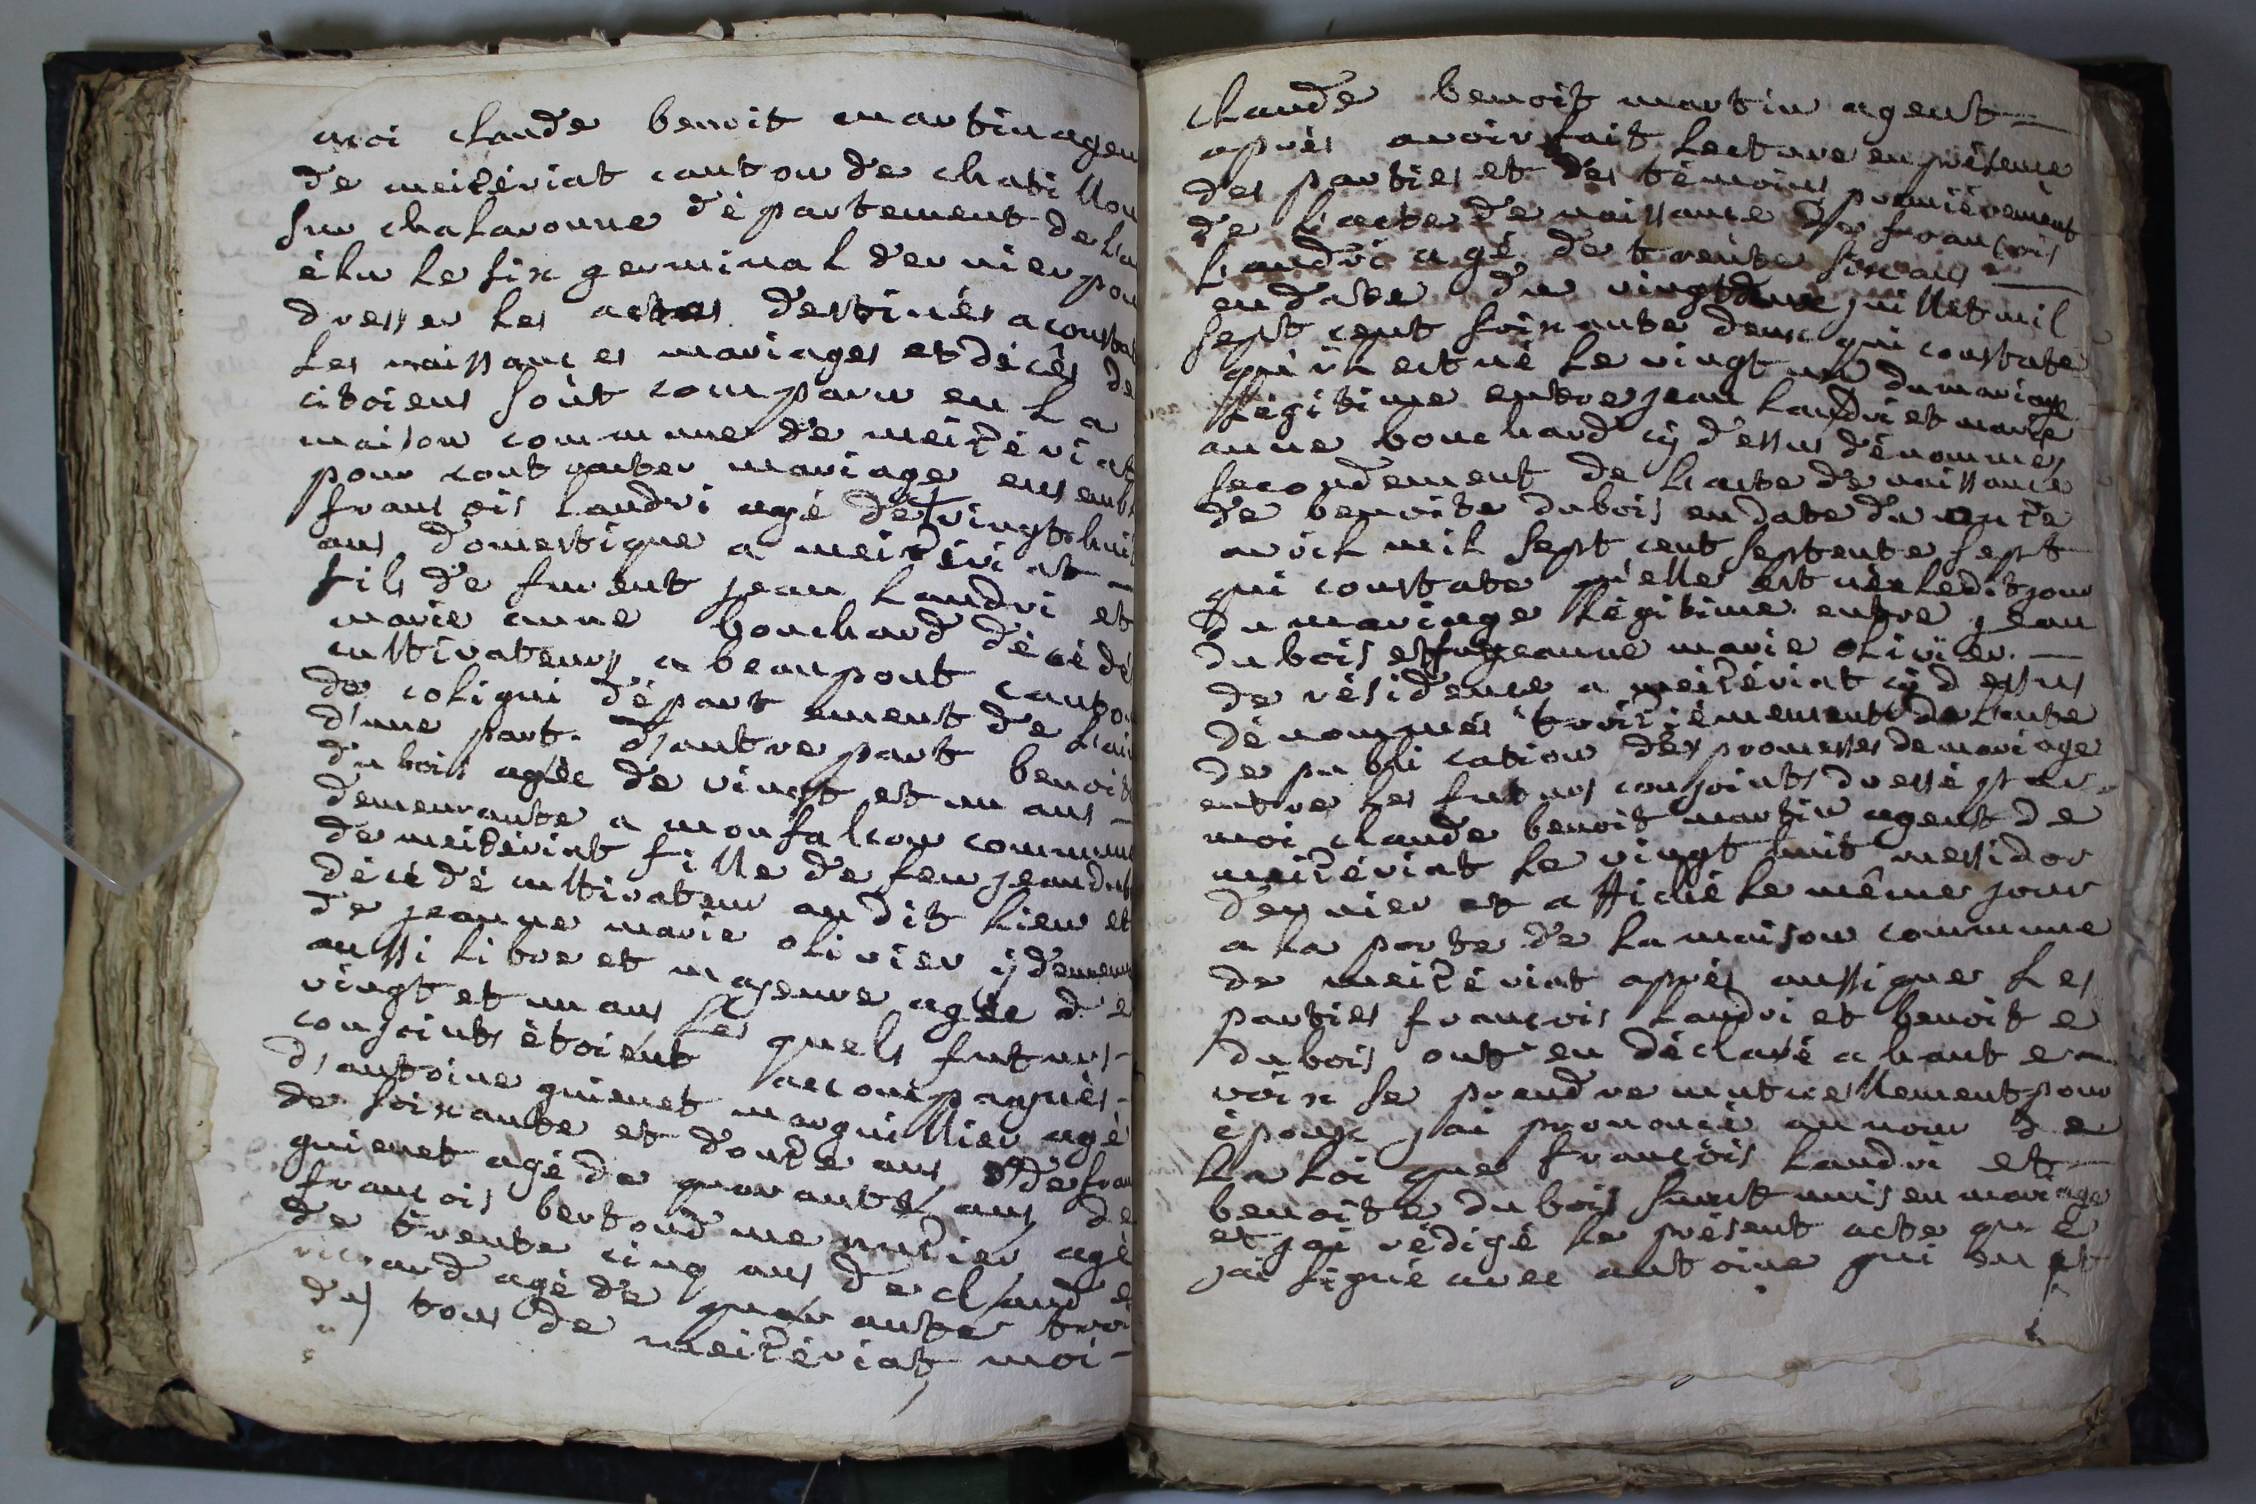 moi claude benoit martin agen
de meizériat canton de chatillon
sur chalaronne département de l'ai
élu le six germinal dernier pou
dresser les actes destinés a constat
les naissances mariages et décès de
citoiens sont comparu en la
maison commune de meizériat
pour contracter mariage ensemb
francois landri agé de vingt huit
ans domestique a meizériat
fils de furent jean landri et
marie anne bouchard décédé
cultivateurs a beaupont canton
de coligni département de l'ain
d'une part. d'autre part benoite
dubois agée de vingt et un ans
demeurante a monfalcon commune
de meizériat fille de feu jean dub
décédé cultivateur au dit lieu et
de jeanne marie olivier y demeur
aussi libre et majeure agée de
vingt et un ans les quels futurs
conjoints étoient accompagnés
d'antoine guienet marguillier agé
de soixante et douze ans de fran
guienet agé de quarante ans de
francois bertoud menuzier agé
de trente cinq ans de claude
vicrard agé de quarante troi
ds tous de meizériat moi
claude benoit martin agent
après avoir fait lecture en présence
des parties et des témoins premièrement
de l'acte de naissance de francois
landri agé de trente six ans
en date du vingt deux juillet mil
sept cent soixante deux qui constate
qu'il est né le vingt un du mariage
légitime entre jean landri et marie
anne bouchard cy dessus dénommés
secondement de l'acte de naissance
de benoite dubois en date du onze
avril mil sept cent septente sept
qui constate q'elle est née le dit jour
du mariage légitime entre jean
dubois et jeanne marie olivier.
de résidence a meizériat cy dessus
dénommés troizièmement de l'acte
de publication des promesses de mariage
entre les futurs conjoints dressé par
moi claude benoit martin agent de
meizériat le vingt huit messidor
dernier et affiché le même jour
a la porte de la maison commune
de meizériat après aussi que les
parties francois landri et benoite
dubois ont eu déclaré a haute
voix se prendre mutuellement pour
époux j'ai prononcé au nom de
la loi que francois landri et
benoite dubois sont unis en mariage
et j'ai rédigé le présent acte que
j'ai signé avec antoine gui en et